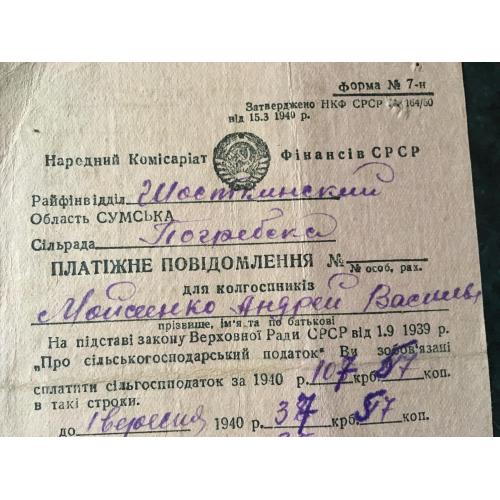 форма № 7-н
Затверджено НКФ СРСР № 164/60
від 15.3 1940 р.
Народний Комісаріат Фінансів СРСР
Райфінвідділ Шосткинский
Область СУМСЬКА
Сільрада Погребска
ПЛАТІЖНЕ ПОВІДОМЛЕННЯ №
№ особ. рах.
для колгоспників
Андрей Василь
прізвище, ім'я та по батькові
На підставі закону Верховної Ради СРСР від 1.9 1939 р.
„Про сільськогосподарський податок" Ви зобов'язані
сплатити сільгоспподаток за 1940 р. 107 крб. 57 коп.
в такі строки.
до 1 вересня 1940 р. 37 крб. 57 коп.